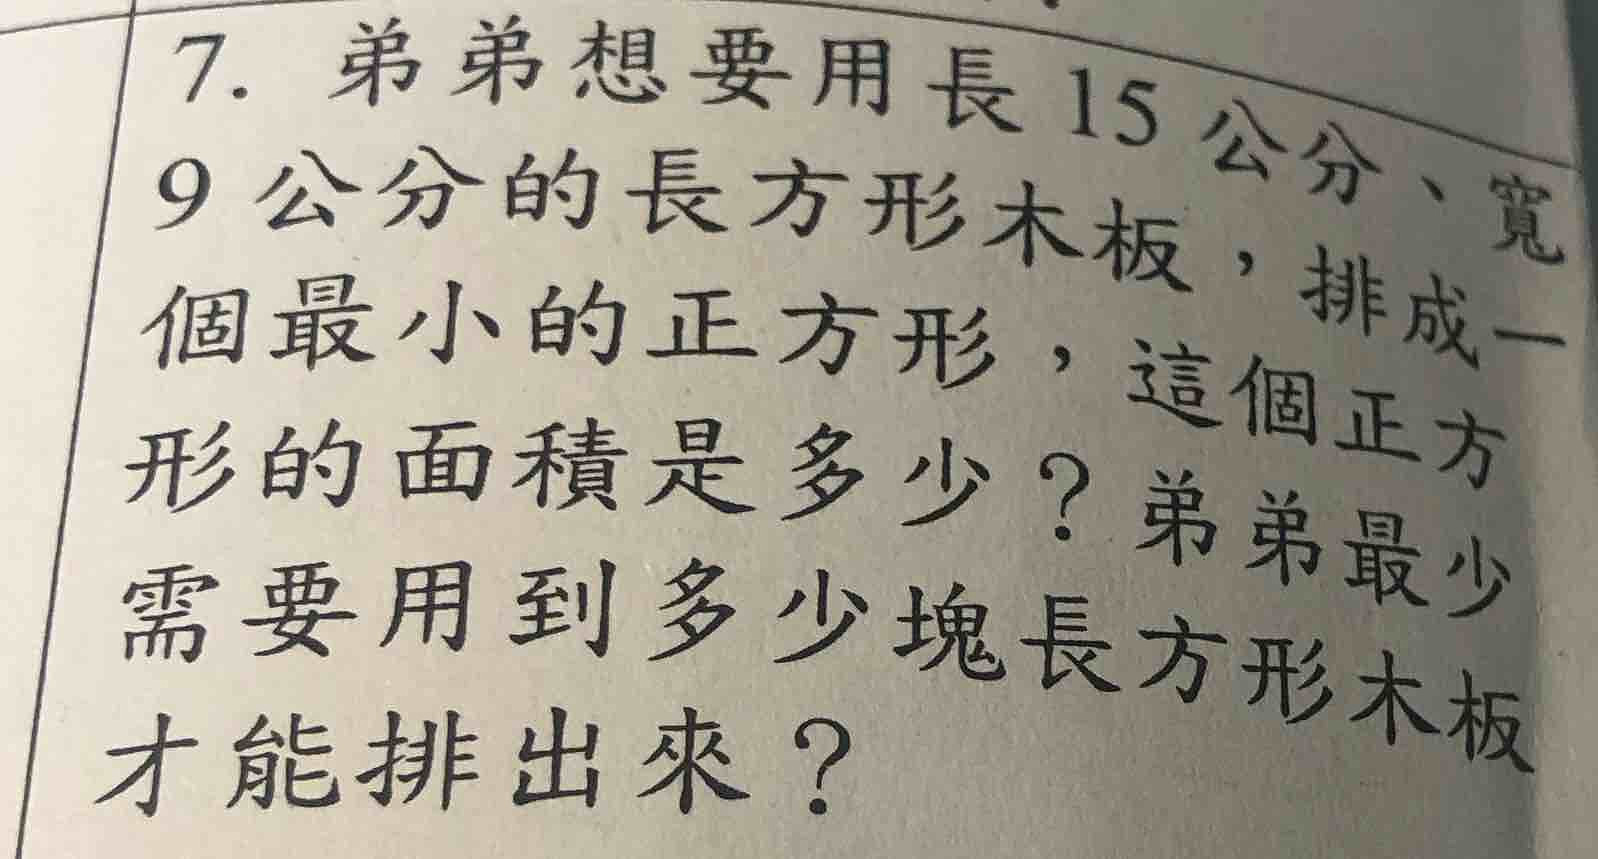 7. 弟弟想要用長15公分、寬
9公分的長方形木板，排成一
個最小的正方形，這個正方
形的面積是多少？弟弟最少
需要用到多少塊長方形木板
才能排出來？